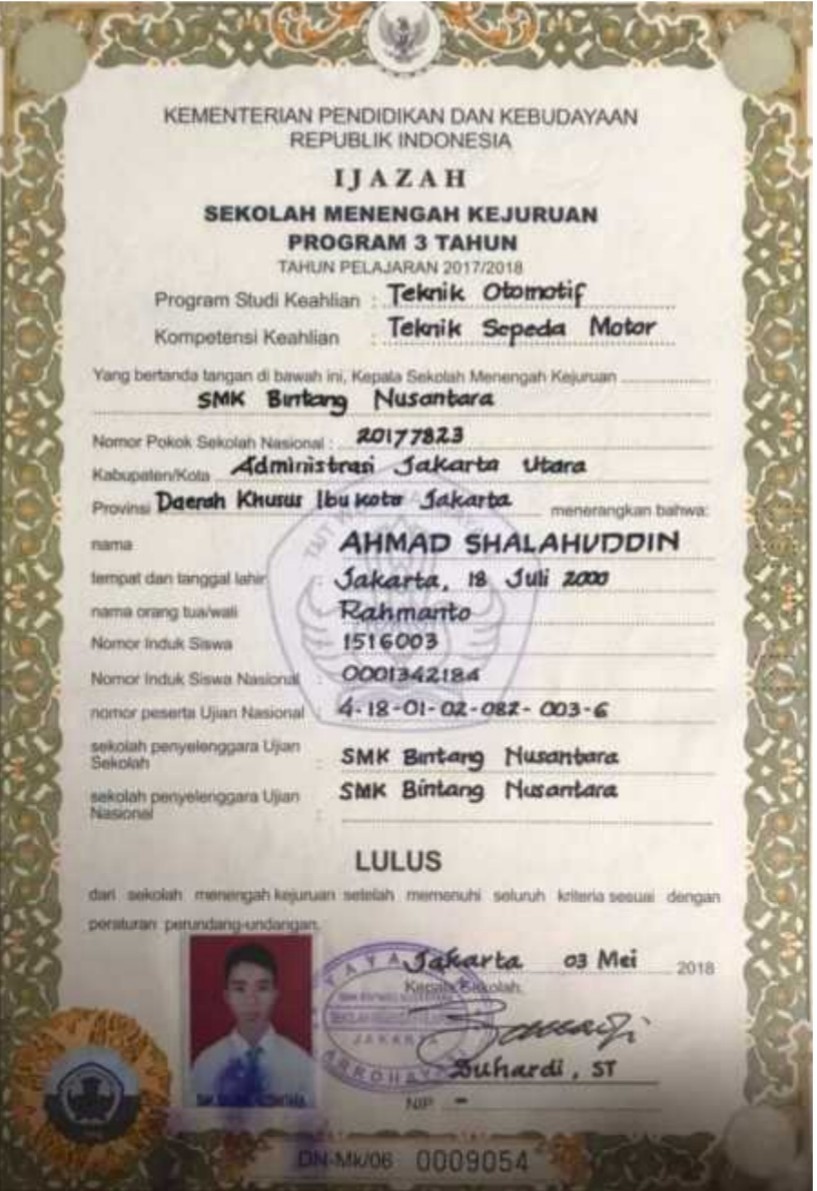 KEMENTERIAN PENDIDIKAN DAN KEBUDAYAAN
REPUBLIK INDONESIA
IJAZAH
SEKOLAH MENENGAH KEJURUAN
PROGRAM 3 TAHUN
TAHUN PELAJARAN 2017/2018
Program Studi Keahlian : Teknik Otomotif
Kompetensi Keahlian : Teknik Sepeda Motor
Yang bertanda tangan di bawah ini, Kepala Sekolah Menengah Kejuruan
SMK Bintang Nusantara
Nomor Pokok Sekolah Nasional : 20177823
Kabupaten/Kota Administrasi Jakarta Utara
Provinsi Daerah Khusus Ibukota Jakarta menerangkan bahwa:
nama AHMAD SHALAHUDDIN
tempat dan tanggal lahir : Jakarta, 18 Juli 2000
nama orang tua/wali Rahmanto
Nomor Induk Siswa 1516003
Nomor Induk Siswa Nasional : 0001342184
nomor peserta Ujian Nasional : 4-18-01-02-082-003-6
sekolah penyelenggara Ujian
Sekolah : SMK Bintang Nusantara
sekolah penyelenggara Ujian SMK Bintang Nusantara
Nasional :
LULUS
dari sekolah menengah kejuruan setelah memenuhi seluruh kriteria sesuai dengan
peraturan perundang-undangan.
Jakarta 03 Mei 2018
Kepala Sekolah,
YAYASAN
JAKARTA
ARROHAYA
Suhardi, ST
NIP -
DN-Mk/06 0009054